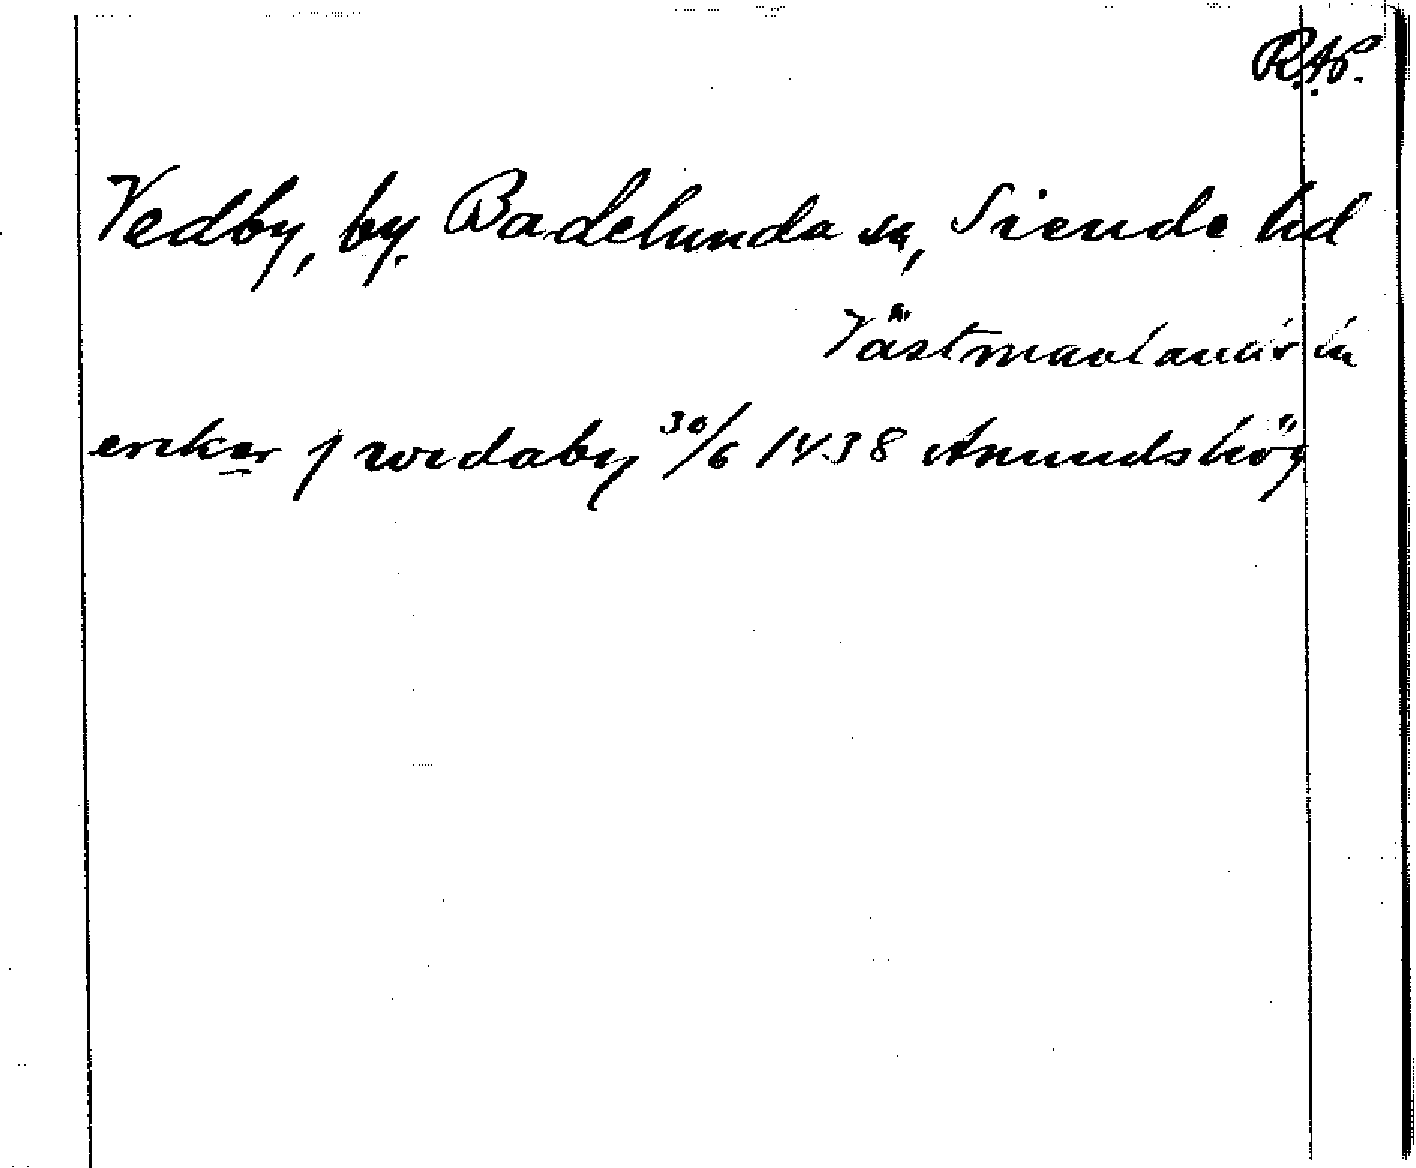 R.A.P.
Vedby, by. Badelunda sn, Siende hd
Västmanlands län
ericker j wedaby 30/6 1438 Anundshög